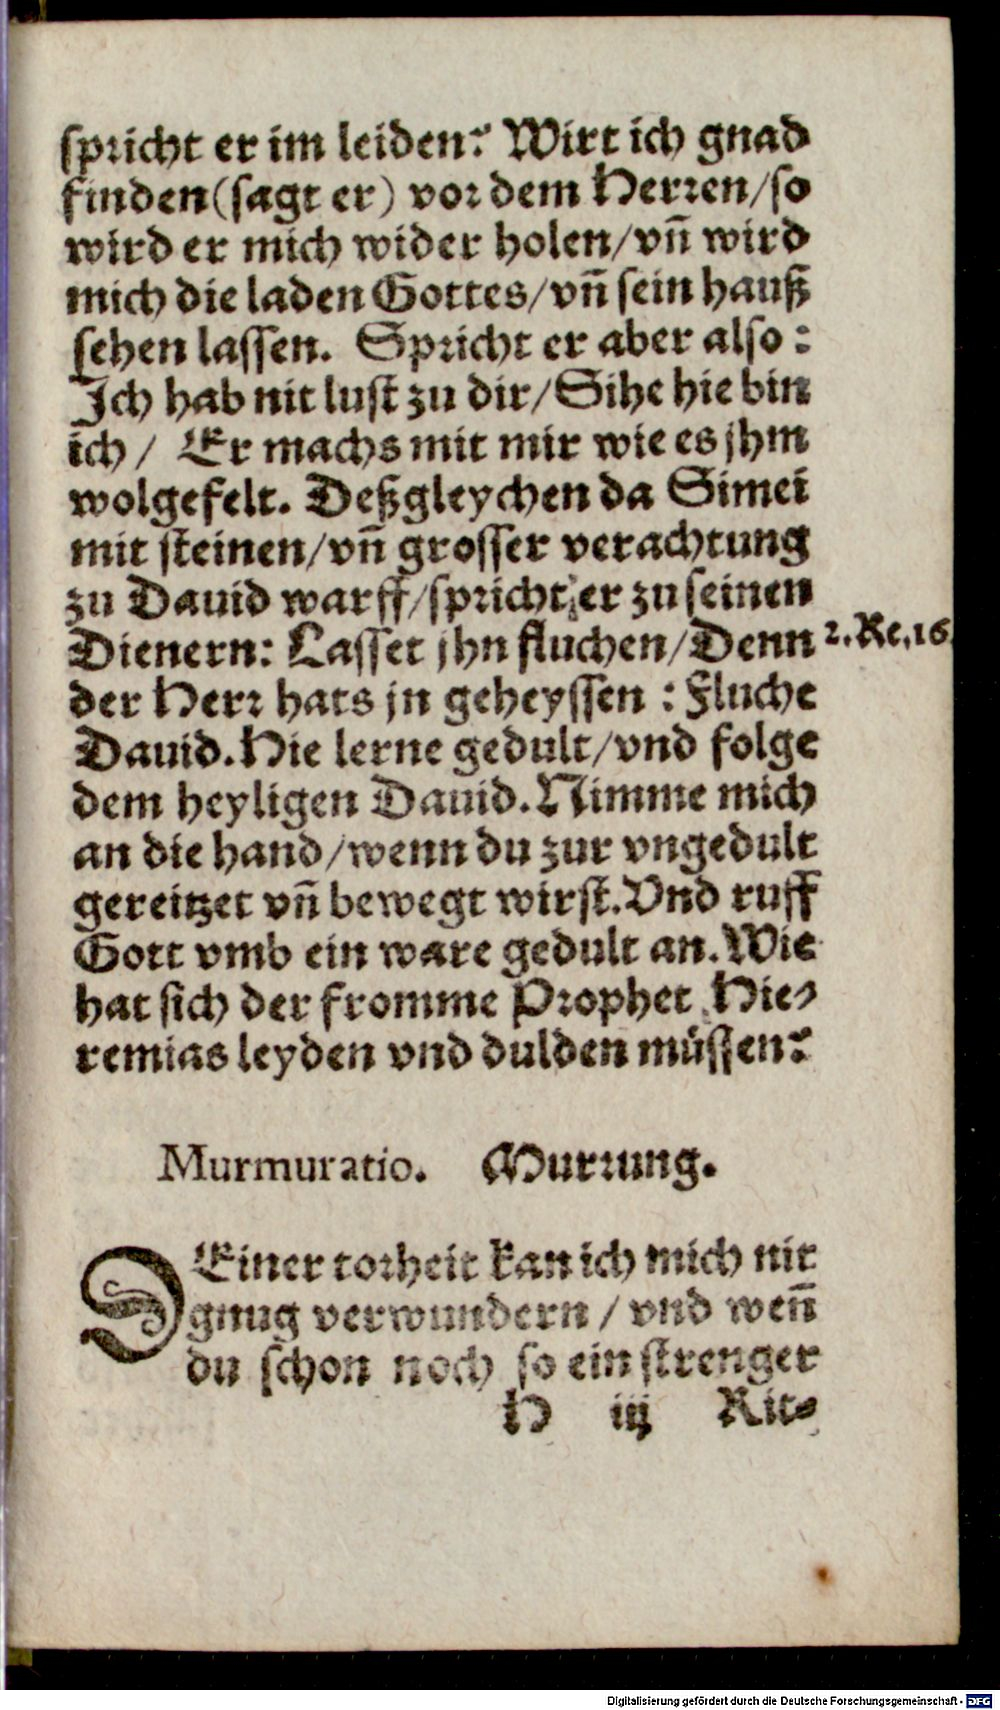 spricht er im leiden? Wirt ich gnad
finden (sagt er) vor dem Herren/so
wird er mich wider holen/vñ wird
mich die laden Gottes/vñ sein hauß
sehen lassen. Spricht er aber also:
Ich hab nit lust zu dir/Sihe hie bin
ich/ Er machs mit mir wie es jhm
wolgefelt. Deßgleychen da Simei
mit steinen/vñ grosser verachtung
zu Dauid warff/spricht er zu seinen
Dienern: Lasset jhn fluchen/Denn 2. Re. 16.
der Herr hats jn geheyssen: Fluche
Dauid. Hie lerne gedult/vnd folge
dem heyligen Dauid. Nimme mich
an die hand/wenn du zur vngedult
gereitzet vñ bewegt wirst. Vnd ruff
Gott vmb ein ware gedult an. Wie
hat sich der fromme Prophet Hie-
remias leyden vnd dulden müssen?
Murmuratio. Murrung.
DEiner torheit kan ich mich nit
gnug verwundern / vnd weñ
du schon noch so ein strenger
H iij Rit-
Digitalisierung gefördert durch die Deutsche Forschungsgemeinschaft - DFG